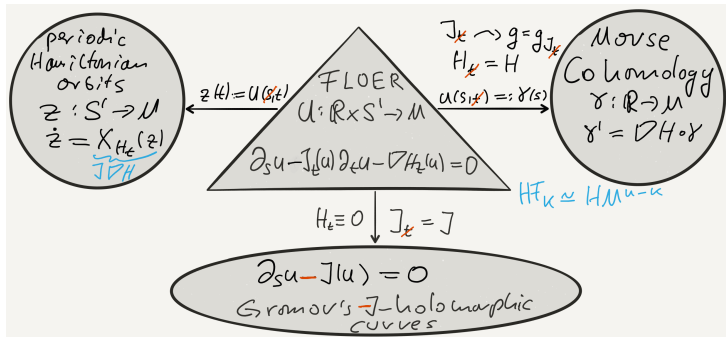 periodic
Hamiltonian
orbits
z : S¹ → M
ż = X_{H_t}(z)
J∇H
z(t) := u(s,t)
FLOER
u : ℝ×S¹ → M
∂ₛu − J_t(u)∂_t u − ∇H_t(u) = 0
J_t ⤳ g = g_{J_t}
H_t = H
u(s,t) =: γ(s)
Morse
Cohomology
γ : ℝ → M
γ' = ∇H∘γ
HF_k ≃ HM^{n−k}
H_t ≡ 0
J_t = J
∂ₛu − J(u) = 0
Gromov's −J-holomorphic
curves